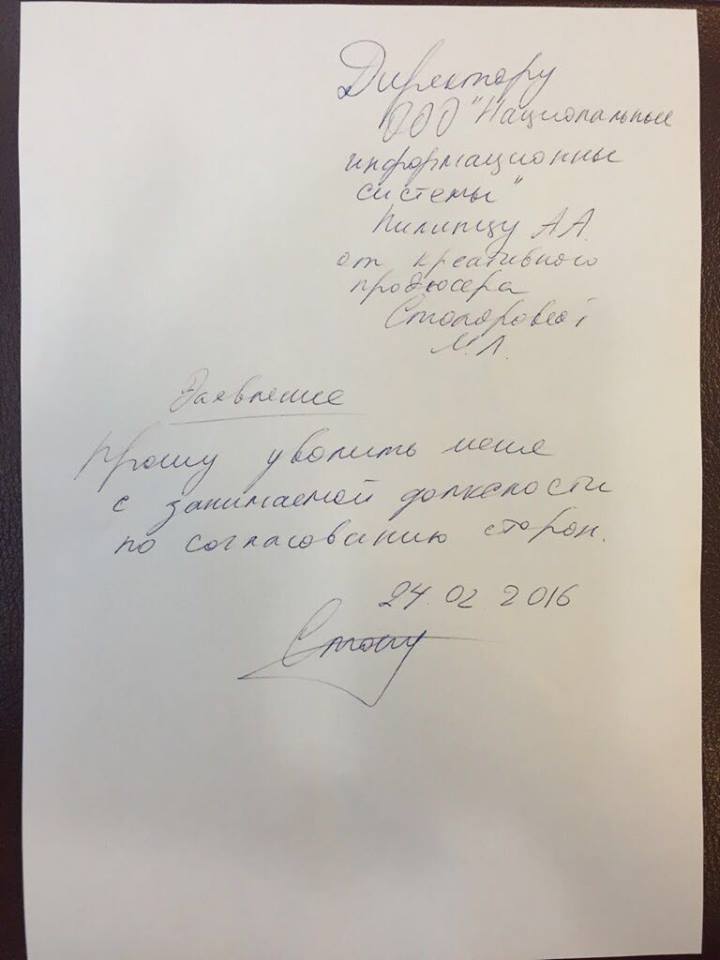 Директору
ООО "Национальные
информационны
системы"
Пилипцу А А.
от креативного
продюсера
Столяровой
М. Л.
Заявление
Прошу уволить меня
с занимаемой должности
по согласованию сторон.
24 02 2016